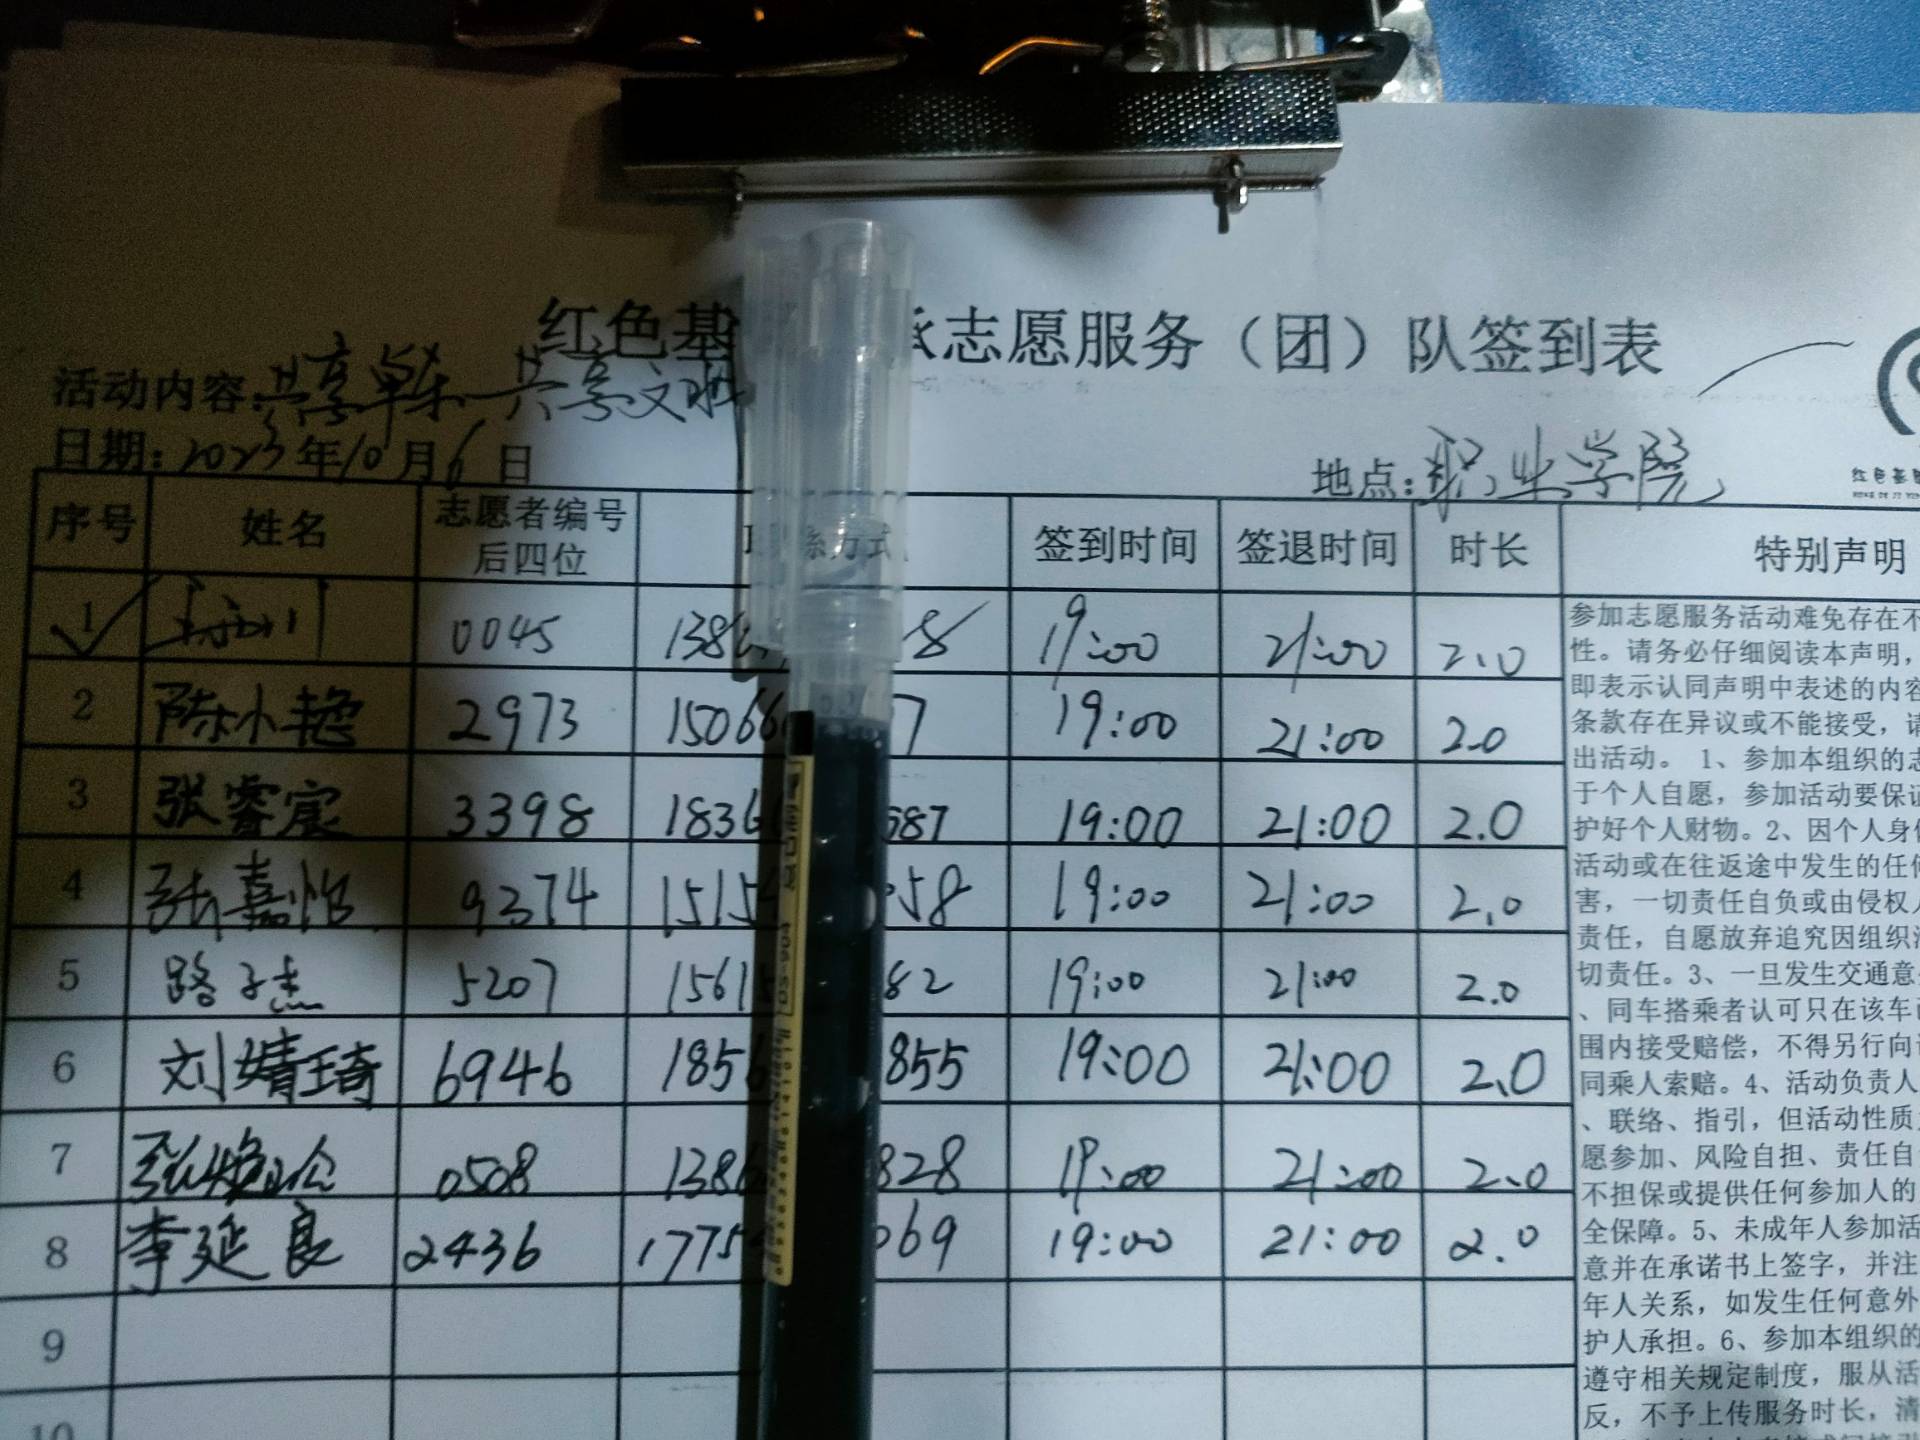 红色基 承志愿服务（团）队签到表
活动内容:共享单车 共享文明
日期:2023年10月6日 地点:职业学院
红色基
序号 姓名 志愿者编号后四位 联系方式 签到时间 签退时间 时长 特别声明
1 0045 138 8 19:00 21:00 2.0
2 陈小艳 2973 15066 7 19:00 21:00 2.0
3 张睿宸 3398 1836 687 19:00 21:00 2.0
4 张嘉怡 9374 1515 058 19:00 21:00 2.0
5 路子杰 5207 1561 82 19:00 21:00 2.0
6 刘婧琦 6946 1856 855 19:00 21:00 2.0
7 0508 1386 828 19:00 21:00 2.0
8 李延良 2436 1775 069 19:00 21:00 2.0
9
10
参加志愿服务活动难免存在不
性。请务必仔细阅读本声明，
即表示认同声明中表述的内容
条款存在异议或不能接受，请
出活动。1、参加本组织的志
于个人自愿，参加活动要保证
护好个人财物。2、因个人身体
活动或在往返途中发生的任何
害，一切责任自负或由侵权人
责任，自愿放弃追究因组织活
切责任。3、一旦发生交通意外
、同车搭乘者认可只在该车
围内接受赔偿，不得另行向
同乘人索赔。4、活动负责人
、联络、指引，但活动性质
愿参加、风险自担、责任自
不担保或提供任何参加人的
全保障。5、未成年人参加活
意并在承诺书上签字，并注
年人关系，如发生任何意外
护人承担。6、参加本组织的
遵守相关规定制度，服从活
反，不予上传服务时长，清